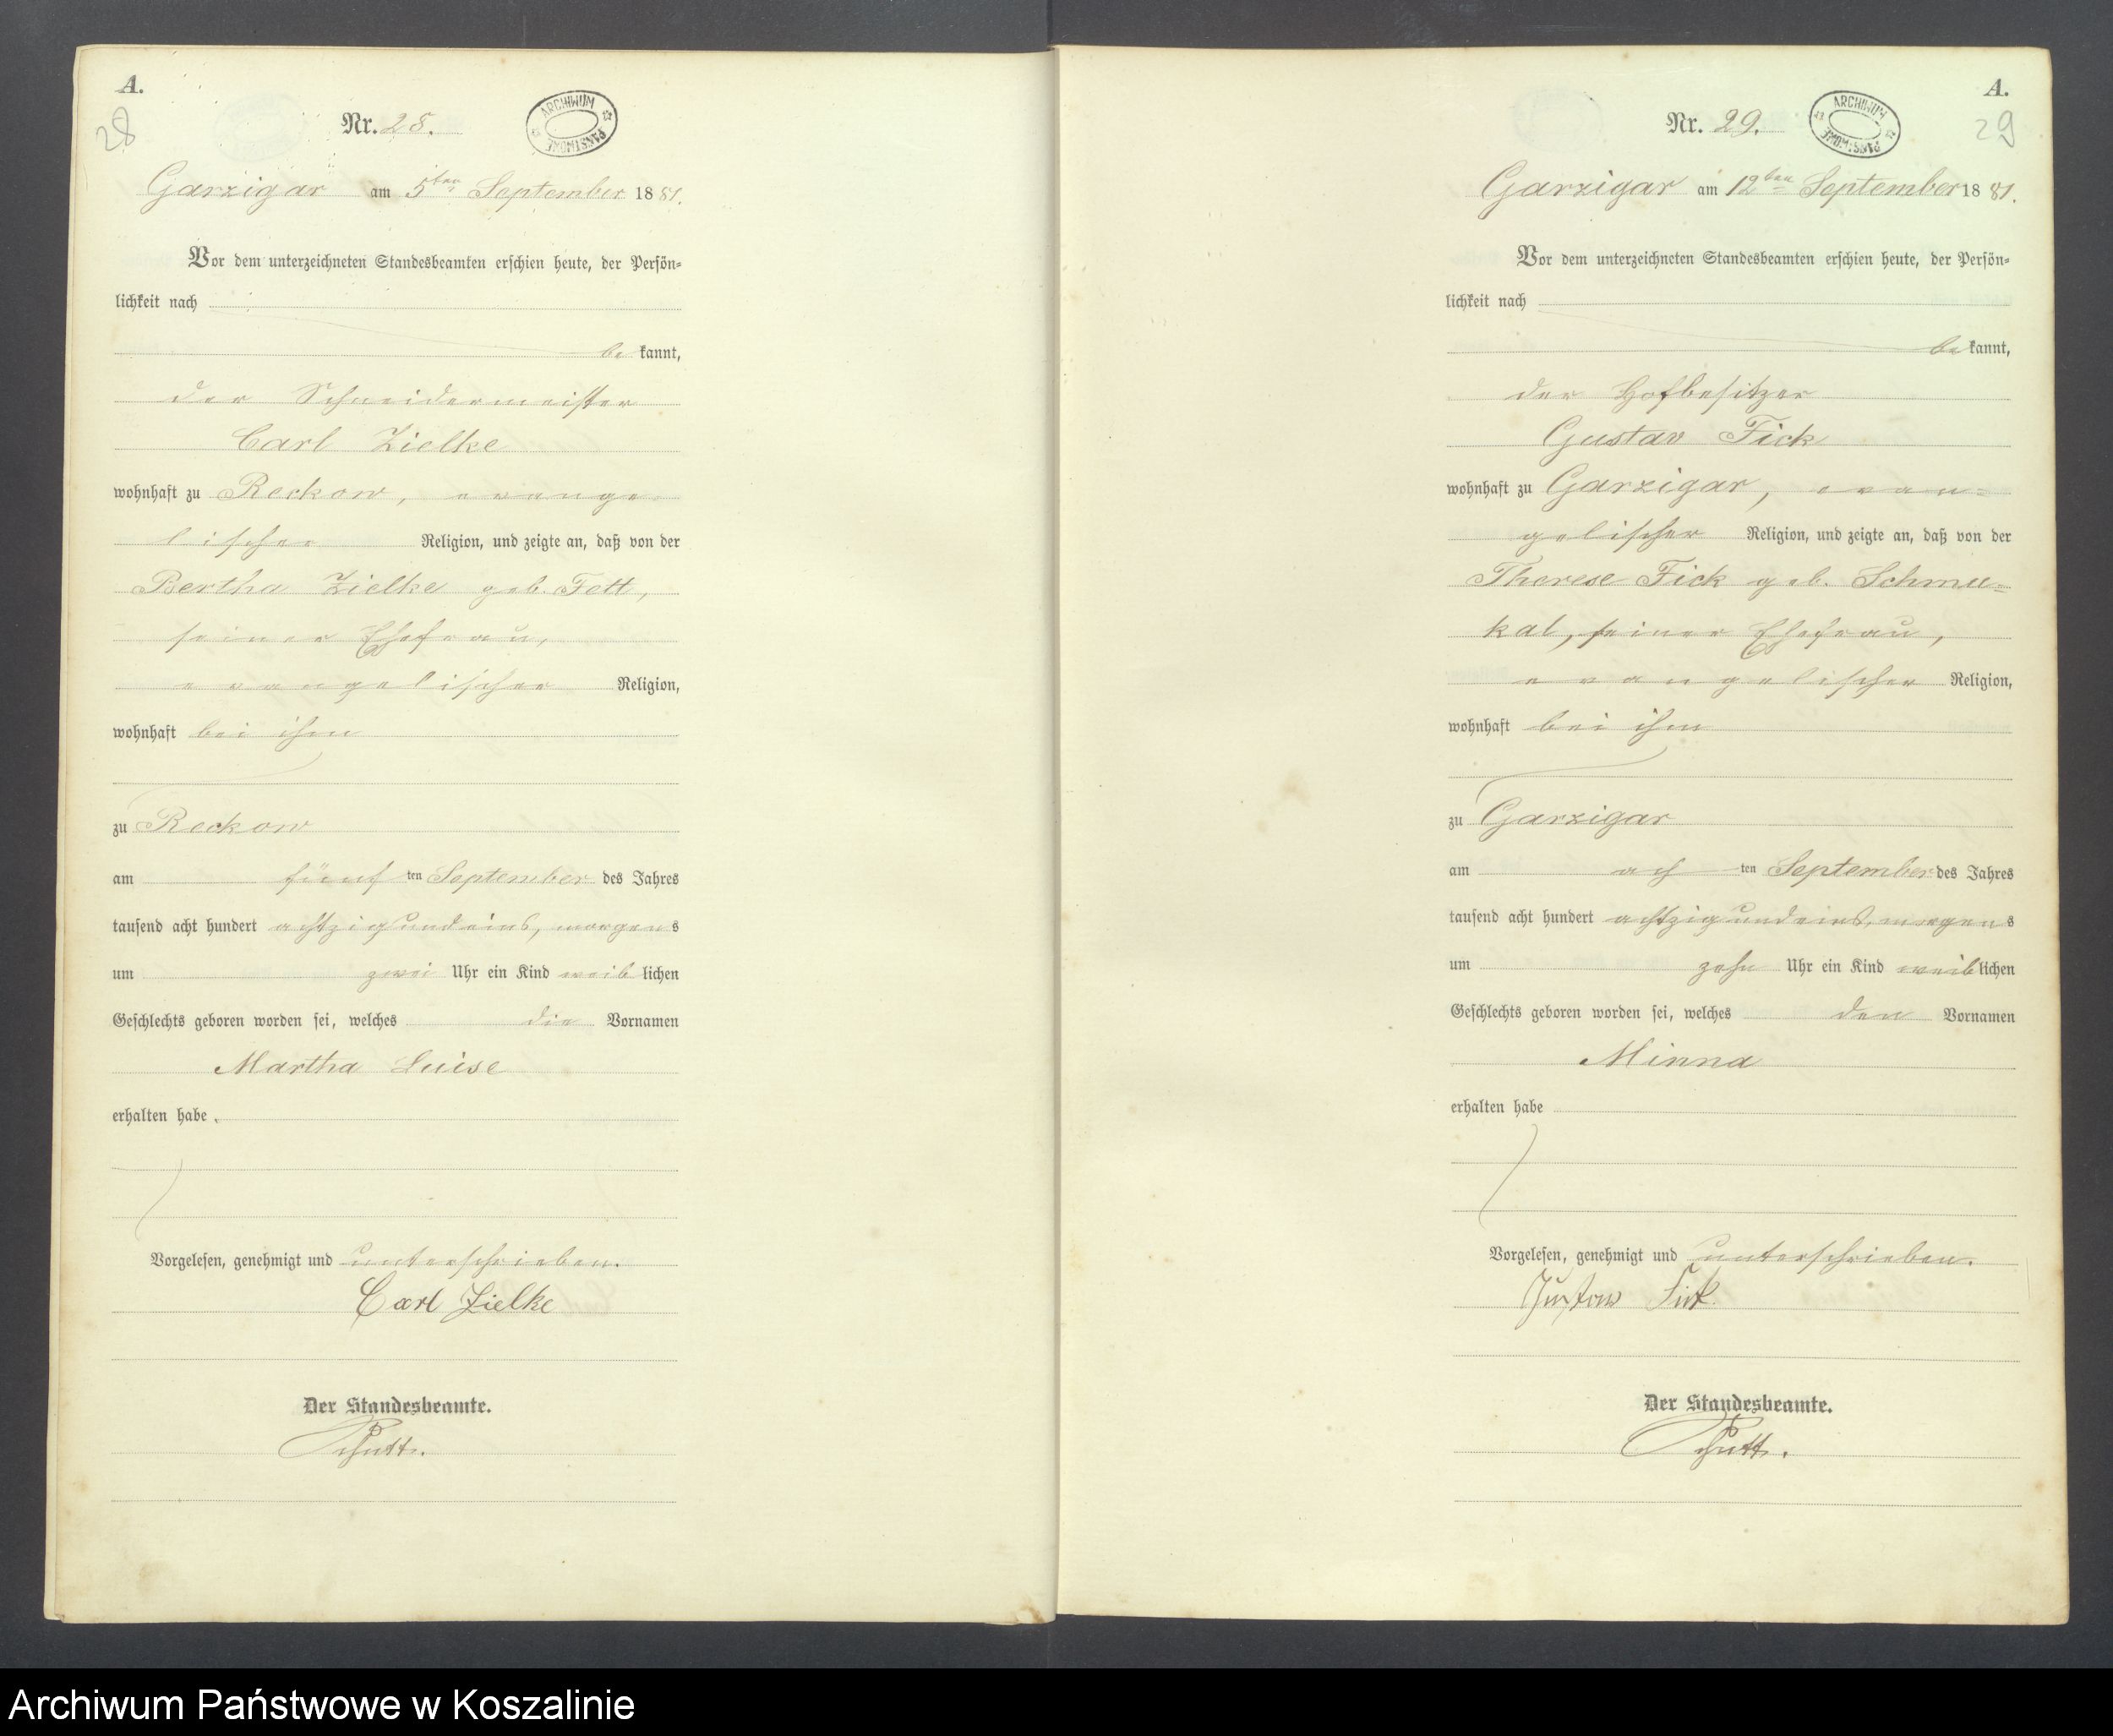 A.
28
Nr. 28.
ARCHIWUM PAŃSTWOWE
Garzigar am 5ten September 1881.
Vor dem unterzeichneten Standesbeamten erschien heute, der Persön=
lichkeit nach
bekannt,
der Schneidermeister
Carl Zielke
wohnhaft zu Reckow, evange-
lischer Religion, und zeigte an, daß von der
Bertha Zielke geb. Fett,
seiner Ehefrau,
evangelischer Religion,
wohnhaft bei ihm
zu Reckow
am fünften September des Jahres
tausend acht hundert achtzigundeins, morgens
um zwei Uhr ein Kind weiblichen
Geschlechts geboren worden sei, welches die Vornamen
Martha Luise
erhalten habe.
Vorgelesen, genehmigt und unterschrieben.
Carl Zielke
Der Standesbeamte.
A.
29
Nr. 29.
ARCHIWUM PAŃSTWOWE
Garzigar am 12ten September 1881.
Vor dem unterzeichneten Standesbeamten erschien heute, der Persön=
lichkeit nach
bekannt,
der Hofbesitzer
Gustav Fick
wohnhaft zu Garzigar, evan=
gelischer Religion, und zeigte an, daß von der
Therese Fick geb. Schmu=
kal, seiner Ehefrau,
evangelischer Religion,
wohnhaft bei ihm
zu Garzigar
am achten September des Jahres
tausend acht hundert achtzigundeins, morgens
um zehn Uhr ein Kind weiblichen
Geschlechts geboren worden sei, welches den Vornamen
Minna
erhalten habe
Vorgelesen, genehmigt und unterschrieben.
Gustav Fick.
Der Standesbeamte.
Archiwum Państwowe w Koszalinie